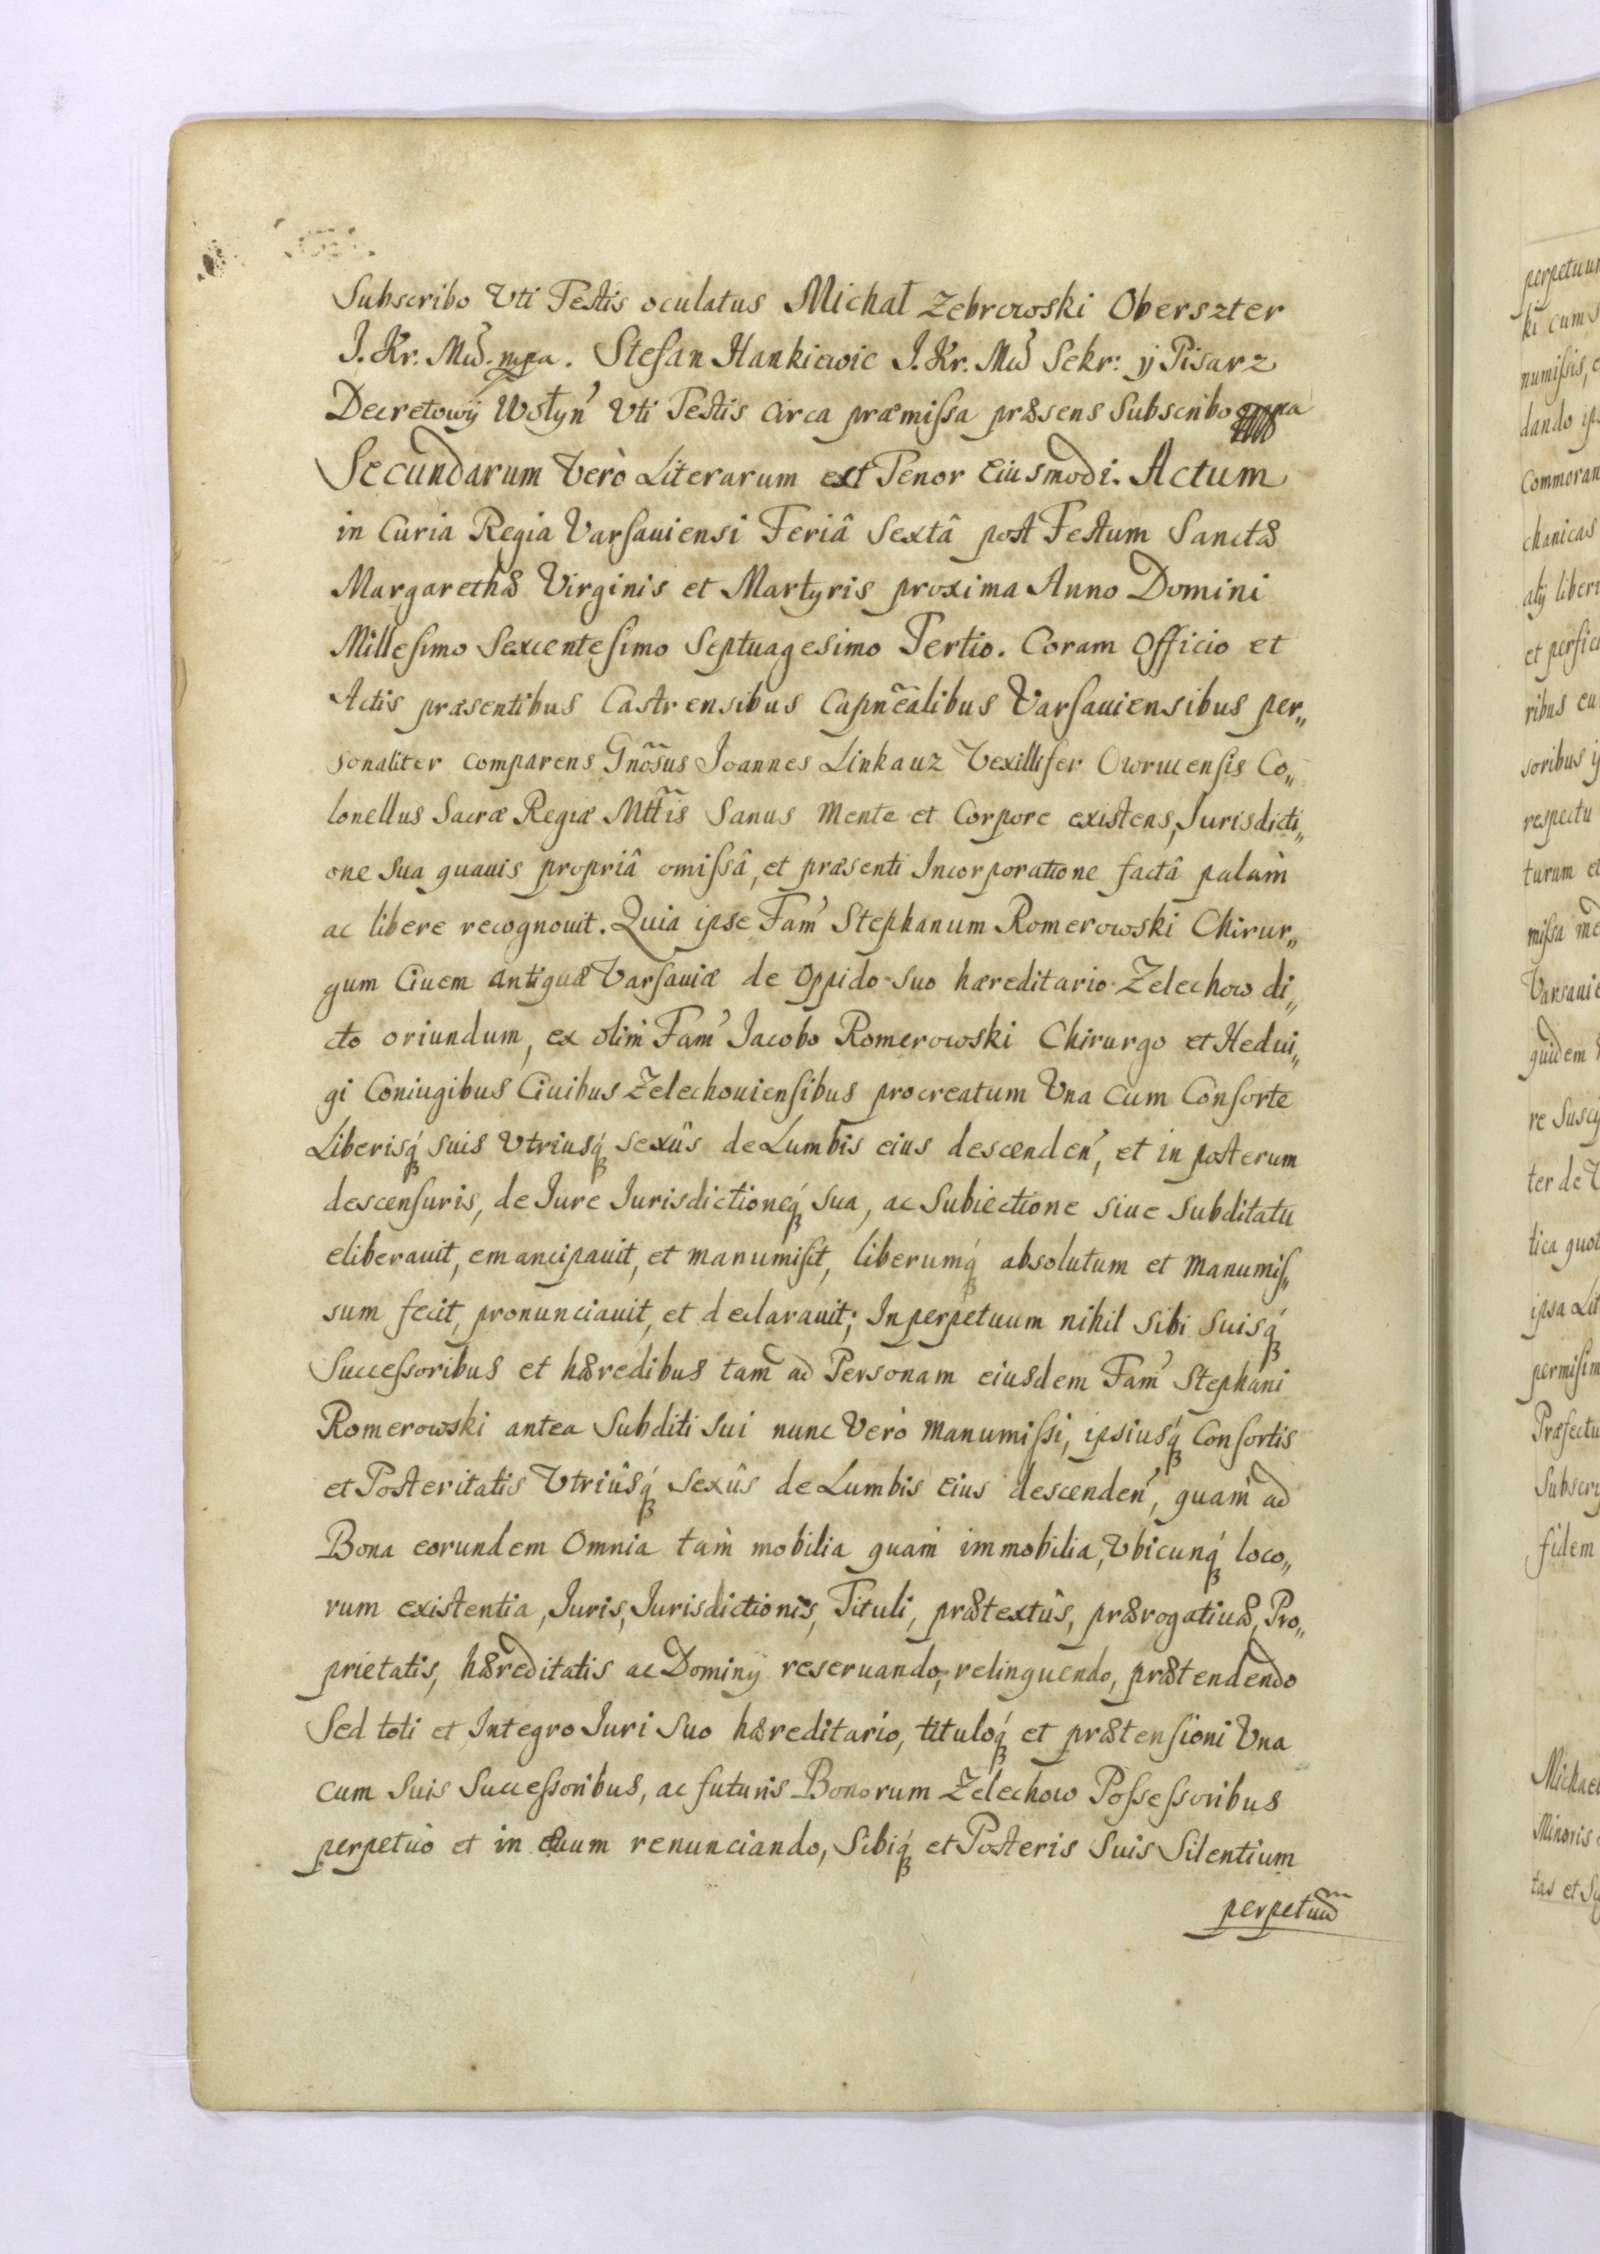 Subscribo Vti Testis oculatus Michał Zebrowski Oberszter
J. Kr. Mći. mpa. Stefan Hankiewic J. Kr. Mći Sekr: ÿ Pisarz
Decretowÿ Wołyń Vti Testis circa præmissa præsens Subscribo mpa
Secundarum Verò Literarum est Tenor Eiusmodi. Actum
in Curia Regia Varsauiensi Feriâ Sextâ post Festum Sanctæ
Margarethæ Virginis et Martyris proxima Anno Domini
Millesimo Sexcentesimo Septuagesimo Tertio. Coram Officio et
Actis præsentibus Castrensibus Capnealibus Varsauiensibus per„
sonaliter comparens Gnosus Joannes Linkauz Vexillifer Owrucensis Co„
lonellus Sacræ Regiæ Mttis Sanus mente et Corpore existens, Jurisdicti„
one sua quauis propriâ omissâ, et præsenti Incorporatione factâ palàm
ac libere recognouit. Quia ipse Fam' Stephanum Romerowski Chirur„
gum Ciuem antiquæ Varsauiæ de Oppido suo hæreditario Zelechow di„
cto oriundum, ex olim Fam' Jacobo Romerowski Chirurgo et Hedui„
gi Coniugibus Ciuibus Zelechouiensibus procreatum Vna cum Consorte
Liberisq́ suis Vtriusq́ sexûs de Lumbis eius descenden', et in posterum
descensuris, de Jure Jurisdictioneq́ sua, ac Subiectione siue Subditatu
eliberauit, emancipauit, et manumisit, liberumq́ absolutum et manumis„
sum fecit, pronunciauit, et declarauit; Inperpetuum nihil sibi suisq́
Successoribus et hæredibus tam ad Personam eiusdem Fam' Stephani
Romerowski antea Subditi sui nunc Verò manumissi, ipsiusq́ Consortis
et Posteritatis Vtriûsq́ sexûs de Lumbis Eius descenden', quam ad
Bona eorundem Omnia tam̀ mobilia quam̀ immobilia, Vbicunq́ loco„
rum existentia, Juris, Jurisdictionis, Tituli, prætextûs, prærogatiuæ, Pro„
prietatis, hæreditatis ac Dominÿ reseruando, relinquendo, prætendendo
Sed toti et Integro Juri suo hæreditario, tituloq́ et prætensioni Vna
cum suis Successoribus, ac futuris Bonorum Zelechow Possessoribus
perpetuò et in æuum renunciando, Sibiq́ et Posteris Suis Silentium
perpetuū
perpetuu
ki cum s
numissis, e
dando ips
Commoran
chanicas
alÿ liber
et perfic
ribus cu
soribus ÿ
respectu
turum et
missa me
Varsauie
quidem
re Suscip
ter de V
tica quot
ipsa Lit
permisim
Præfectu
Subscrip
fidem
Michael
Minoris
tas et Su